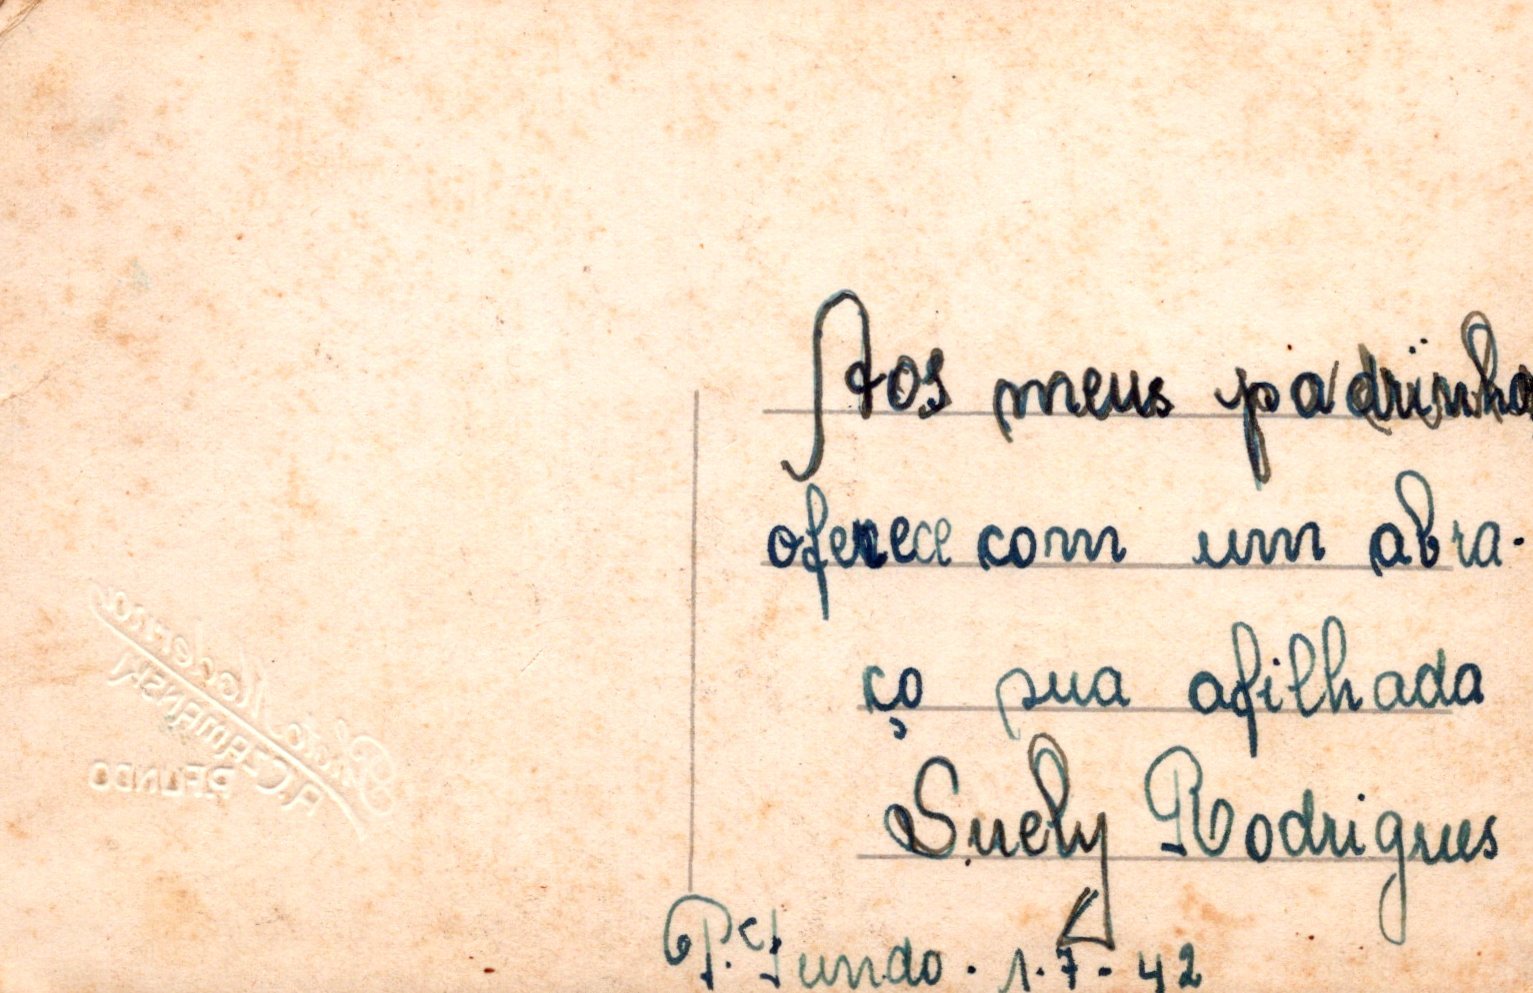 Aos meus padrinho
oferece com um abra-
ço sua afilhada
Suely Rodrigues
P. Fundo. 1.7-42
Photo Moderna
A. CZAMENSKI
P. FUNDO